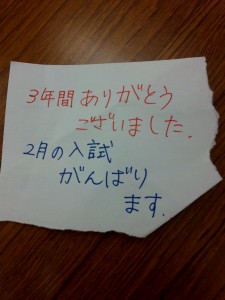 3年間ありがとう
ございました.
2月の入試
がんばり
ます.